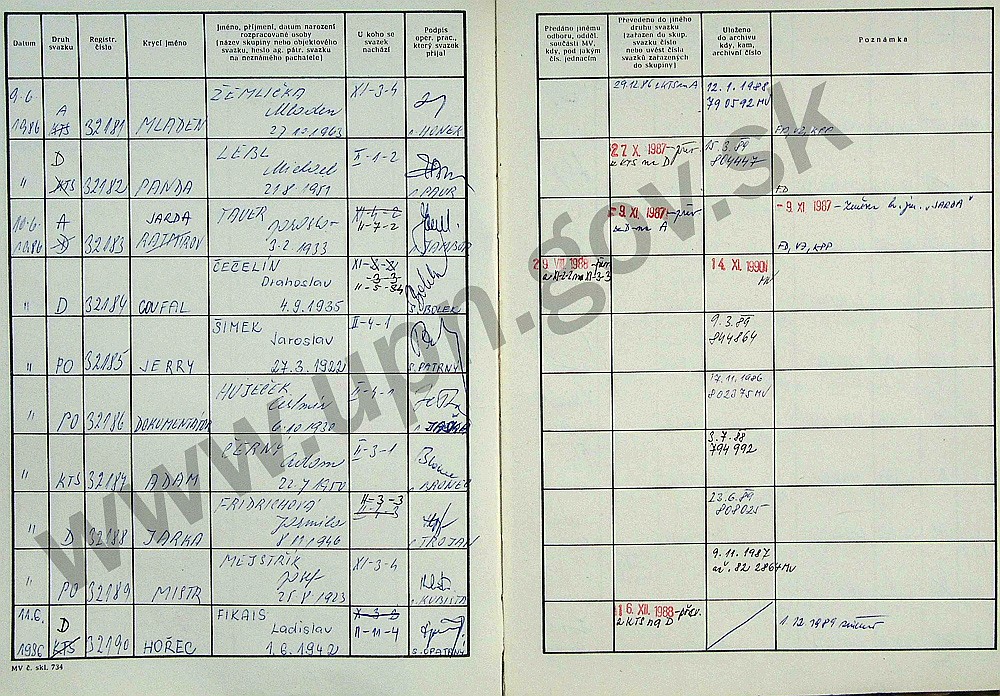 Datum
Druh svazku
Registr. číslo
Krycí jméno
Jméno, příjmení, datum narození
rozpracované osoby
(název skupiny nebo objektového
svazku, heslo ag. pátr. svazku
na neznámého pachatele)
U koho se
svazek
nachází
Podpis
oper. prac.,
který svazek
přijal
Předáno jinému
odboru, odděl.
součásti MV,
kdy, pod jakým
čís. jednacím
Převedeno do jiného
druhu svazku
(zařazen do skup.
svazku číslo
nebo uvést číslo
svazků zařazených
do skupiny)
Uloženo
do archivu
kdy, kam,
archivní číslo
Poznámka
9.6. 1986 A KTS 32181 MLADEN
ŽEMLIČKA
Mladen
27.12.1963
XI-3-4
HONEK
29.12.86 z KTS na A
12.1.1988
790592 MV
FD, VJ, KPP
" D KTS 32182 PANDA
LEBL
Michael
21.8.1951
II-1-2
27 X. 1987
z KTS na D
15.3.89
804447
FD
10.6. 1986 A D 32183 JARDA
TAUER
3.2.1933
XI-4-2
II-7-2
-9. XI 1987
z D na A
-9. XI 1987 - "JARDA"
FD, VJ, KPP
" D 32184 COUFAL
ČEČELÍN
Drahoslav
4.9.1935
S. BOLEK
29. VII. 1988
14. XI. 1990
MV
" PO 32185 JERRY
ŠIMEK
Jaroslav
27.3.1922
II-4-1
S. PATRNÝ
9.3.89
844864
" PO 32186 DOKUMENTÁTOR
HUJEČEK
6.10.1930
II-4-1
17.11.1986
802375 MV
" KTS 32187 ADAM
ČERNÝ
Adam
22.7.1950
II-3-1
3.7.88
794992
" D 32188 JARKA
FRIDRICHOVÁ
Jarmila
8.11.1946
II-3-3
TROJAN
23.6.89
808025
" PO 32189 MISTR
MEJSTŘÍK
Josef
25.8.1923
XI-3-4
KUBISTA
9.11.1987
82 2867 MV
11.6. 1986 D KTS 32190 HOŘEC
FIKAIS
Ladislav
1.6.1942
X-3-3
II-11-4
S. OPATRNÝ
16. XII. 1988
z KTS na D
1.12.1989
MV č. skl. 734
www.upn.gov.sk